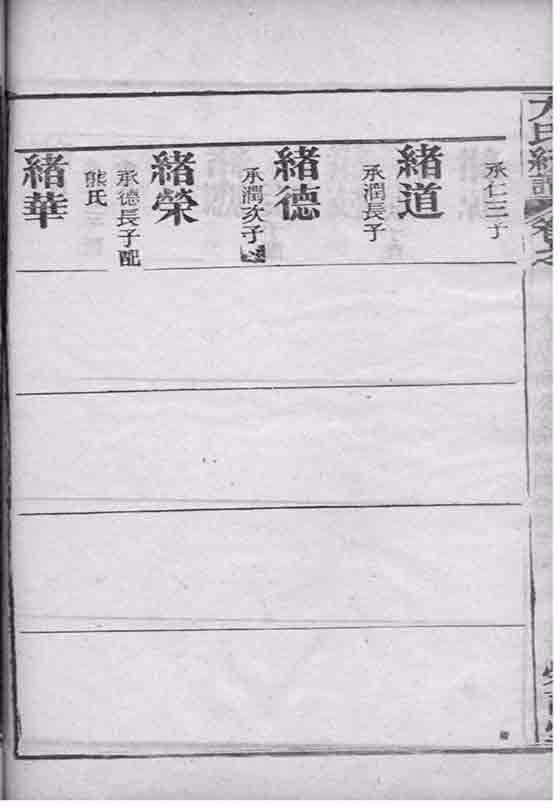 承仁三子
緒道
承潤長子
緒德
承潤次子
緒榮
承德長子配
熊氏
緒華